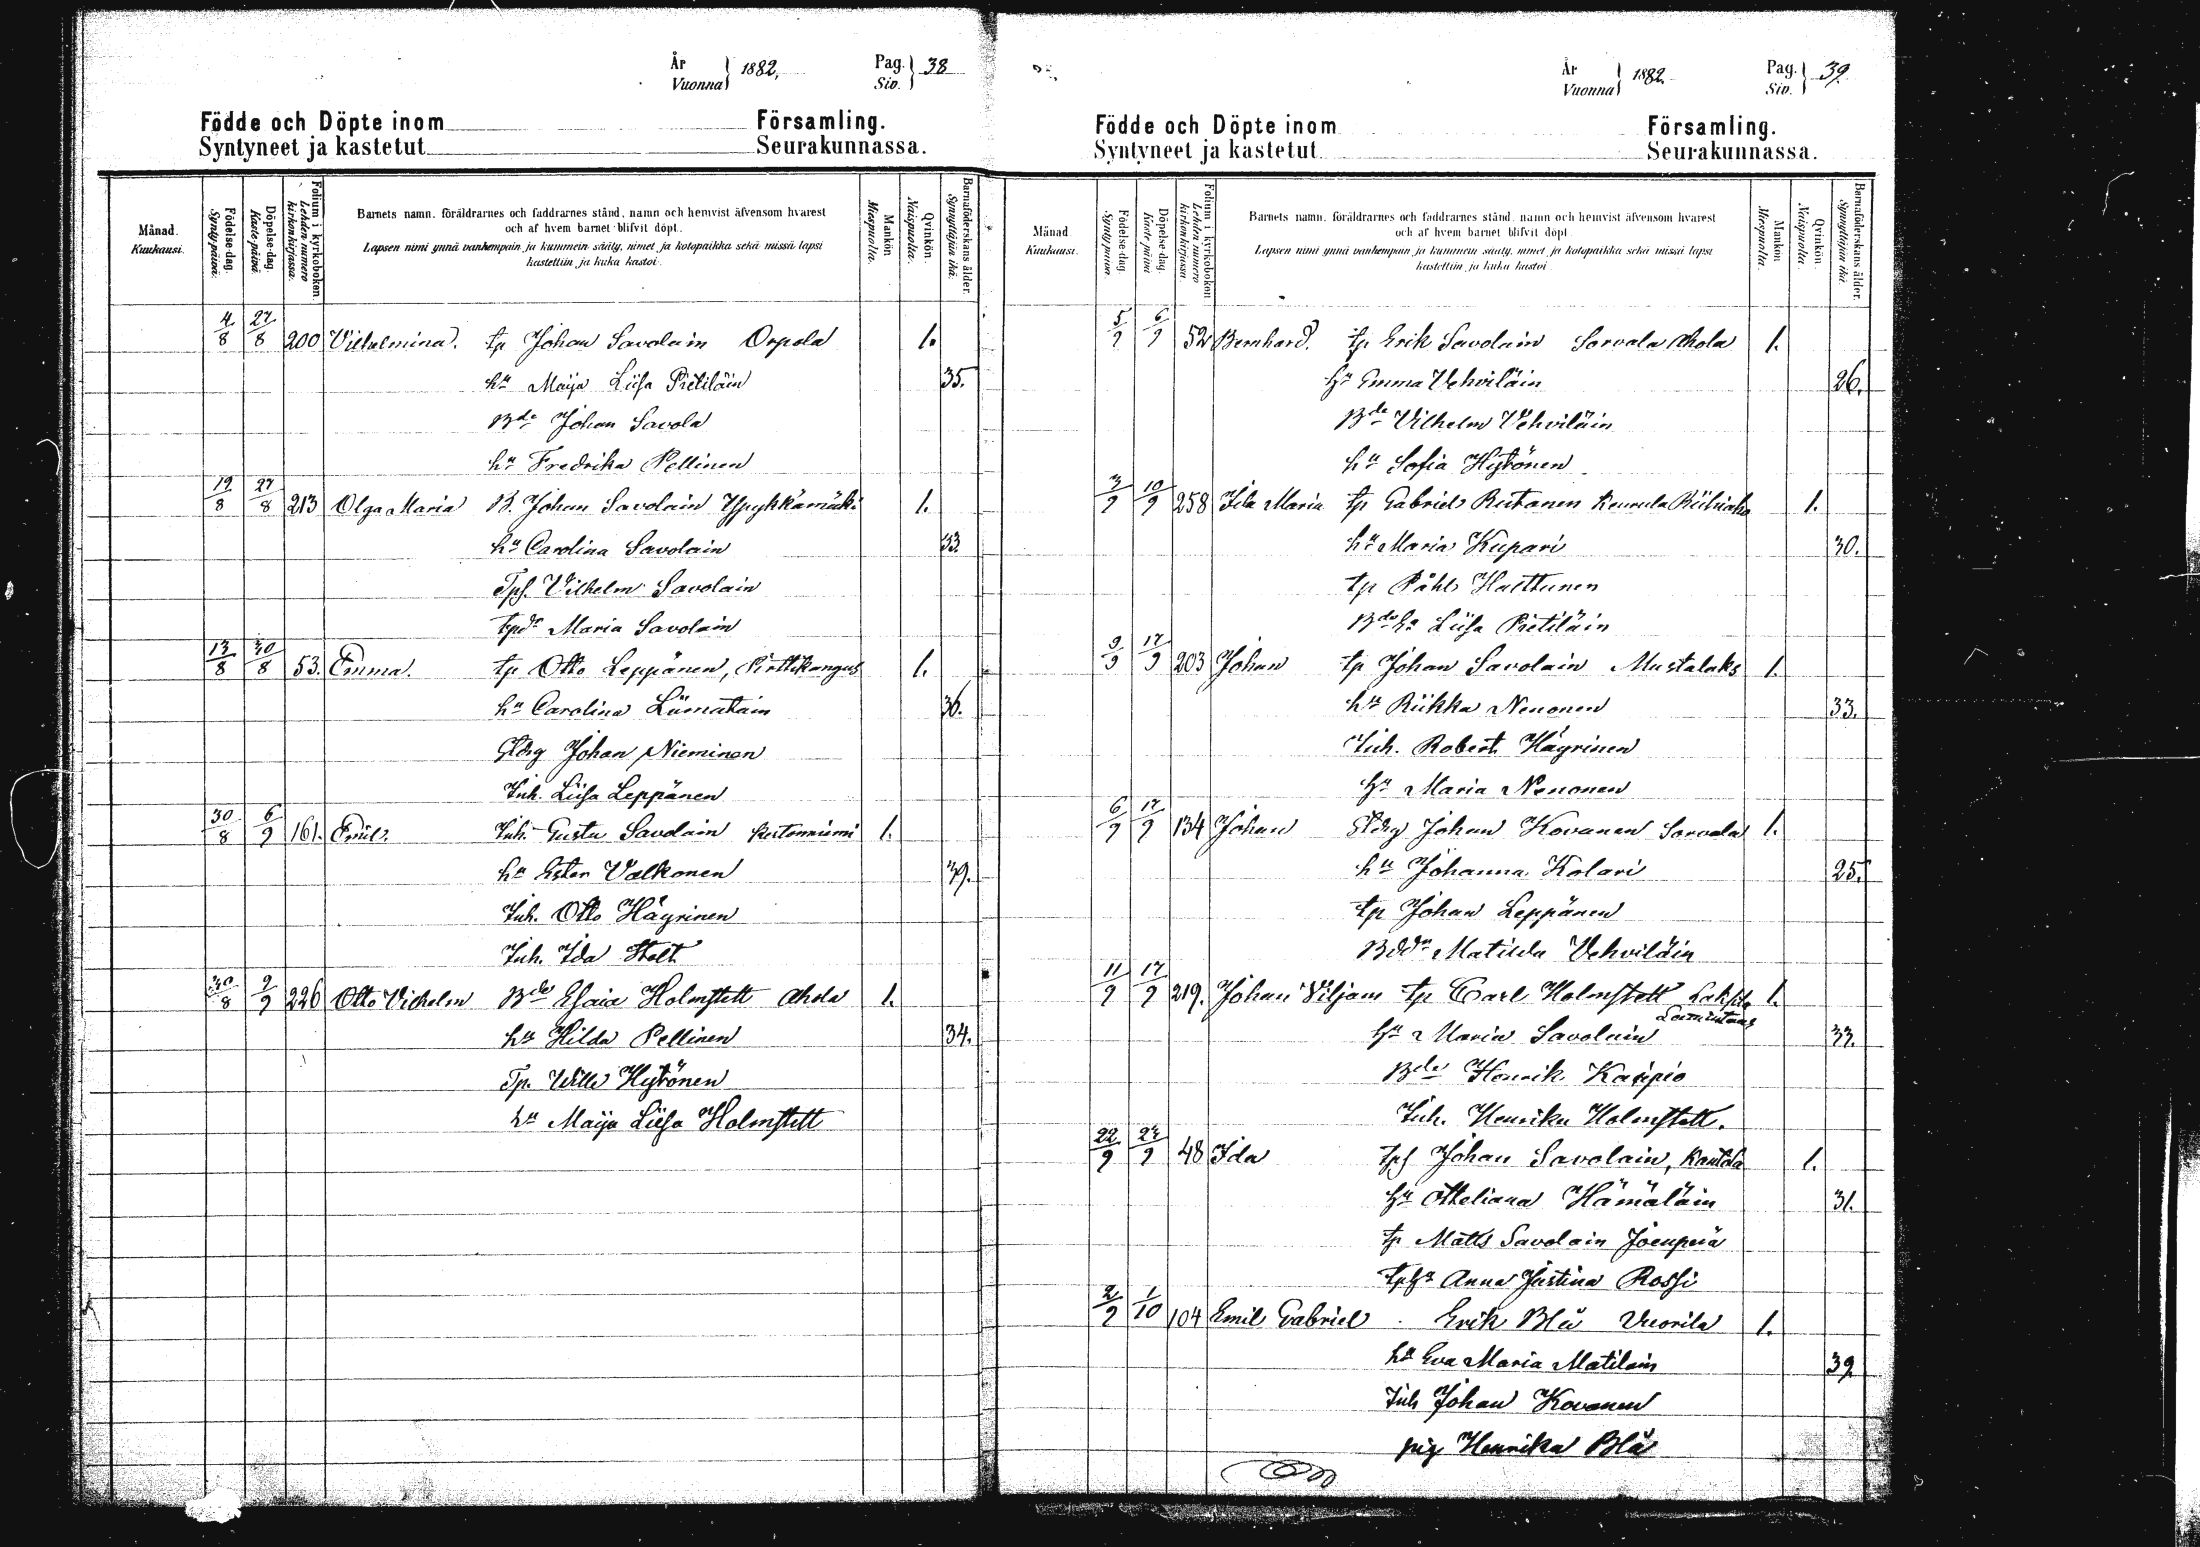 År
Vuonna } 1882,
Pag.
Siv. } 38
Födde och Döpte inom Församling.
Syntyneet ja kastetut Seurakunnassa.
Månad.
Kuukausi.
Födelse-dag.
Synty-päivä.
Döpelse-dag.
Kaste-päivä.
Folium i kyrkoboken.
Lehden numero kirkonkirjassa.
Barnets namn, föräldrarnes och faddrarnes stånd, namn och hemvist äfvensom hvarest
och af hvem barnet blifvit döpt.
Lapsen nimi ynnä vanhempain ja kummein sääty, nimet ja kotopaikka sekä missä lapsi
kastettiin ja kuka kastoi.
Mankön.
Miespuolia.
Qvinkön.
Naispuolia.
Barnaföderskans ålder.
Synnyttäjän ikä.
4/8 27/8 200 Vilhelmina. tp Johan Savolain Orpola 1.
hu Maija Liisa Pietiläin 35.
Bde Johan Savola
hu Fredrika Pellinen
19/8 27/8 213 Olga Maria B. Johan Savolain Ypykkämäki 1.
hu Carolina Savolain 33.
Tps. Vilhelm Savolain
tpdr Maria Savolain
13/8 30/8 53. Emma. tp Otto Leppänen, Pirttikangus 1.
hu Carolina Liimatain 36.
Stdrg Johan Nieminen
Inh. Liisa Leppänen
30/8 6/9 161. Emil. Inh. Gusta Savolain 1.
hu Ester Valkonen 39.
Inh. Otto Häyrinen
Inh. Ida Stolt
30/8 9/9 226 Otto Vilhelm Bde Esaia Holmstett Ahola 1.
hu Hilda Pellinen 34.
Tp. Wille Hytönen
hu Maija Liisa Holmstett
År
Vuonna } 1882.
Pag.
Siv. } 39.
Födde och Döpte inom Församling.
Syntyneet ja kastetut Seurakunnassa.
Månad
Kuukausi.
Födelse-dag.
Synty-päivä.
Döpelse-dag.
Kaste-päivä.
Folium i kyrkoboken
Lehden numero kirkonkirjassa.
Barnets namn, föräldrarnes och faddrarnes stånd, namn och hemvist äfvensom hvarest
och af hvem barnet blifvit döpt.
Lapsen nimi ynnä vanhempain ja kummein sääty, nimet ja kotopaikka sekä missä lapsi
kastettiin ja kuka kastoi.
Mankön
Miespuolia.
Qvinkön
Naispuolia.
Barnaföderskans ålder.
Synnyttäjän ikä
5/9 6/9 52 Bernhard. tp Erik Savolain Sorvala Ahola 1.
hu Emma Vehviläin 26.
Bde Vilhelm Vehviläin
hu Sofia Hytönen
3/9 10/9 258 Ida Maria tp Gabriel Rutanen Keurula Riihiaho 1.
hu Maria Kupari 30.
tp Påhl Halttunen
Bdehu Liisa Pietiläin
9/9 17/9 203 Johan tp Johan Savolain Mustalaks 1.
hu Riikka Nenonen 33.
Inh. Robert Häyrinen
hu Maria Nenonen
6/9 17/9 134 Johan Stdrg Johan Kovanen Sorvala 1.
hu Johanna Kolari 25.
tp Johan Leppänen
Bddr Matilda Vehviläin
11/9 17/9 219. Johan Viljam tp Carl Holmstett 1.
hu Maria Savolain 33.
Bde Henrik Karpio
Inh. Henrika Holmstett.
22/9 24/9 48 Ida tps Johan Savolain, Kantola 1.
hu Otteliana Hämäläin 31.
tp Matts Savolain Joenperä
tphu Anna Justina Rossi
2/9 1/10 104 Emil Gabriel Erik Blå Vuorila 1.
hu Eva Maria Matilain 39
Inh Johan Kovanen
pig Henrika Blå